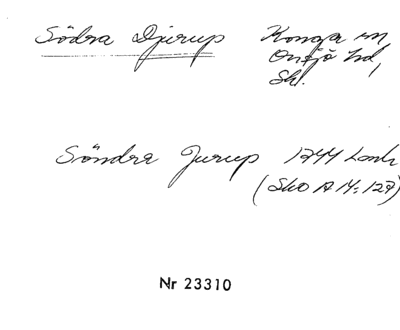 Södra Djurup Konga sn
Onsjö hd,
Sk.
Söndra Jurup 1744 Lmh
(SkO A 14:127)
Nr 23310